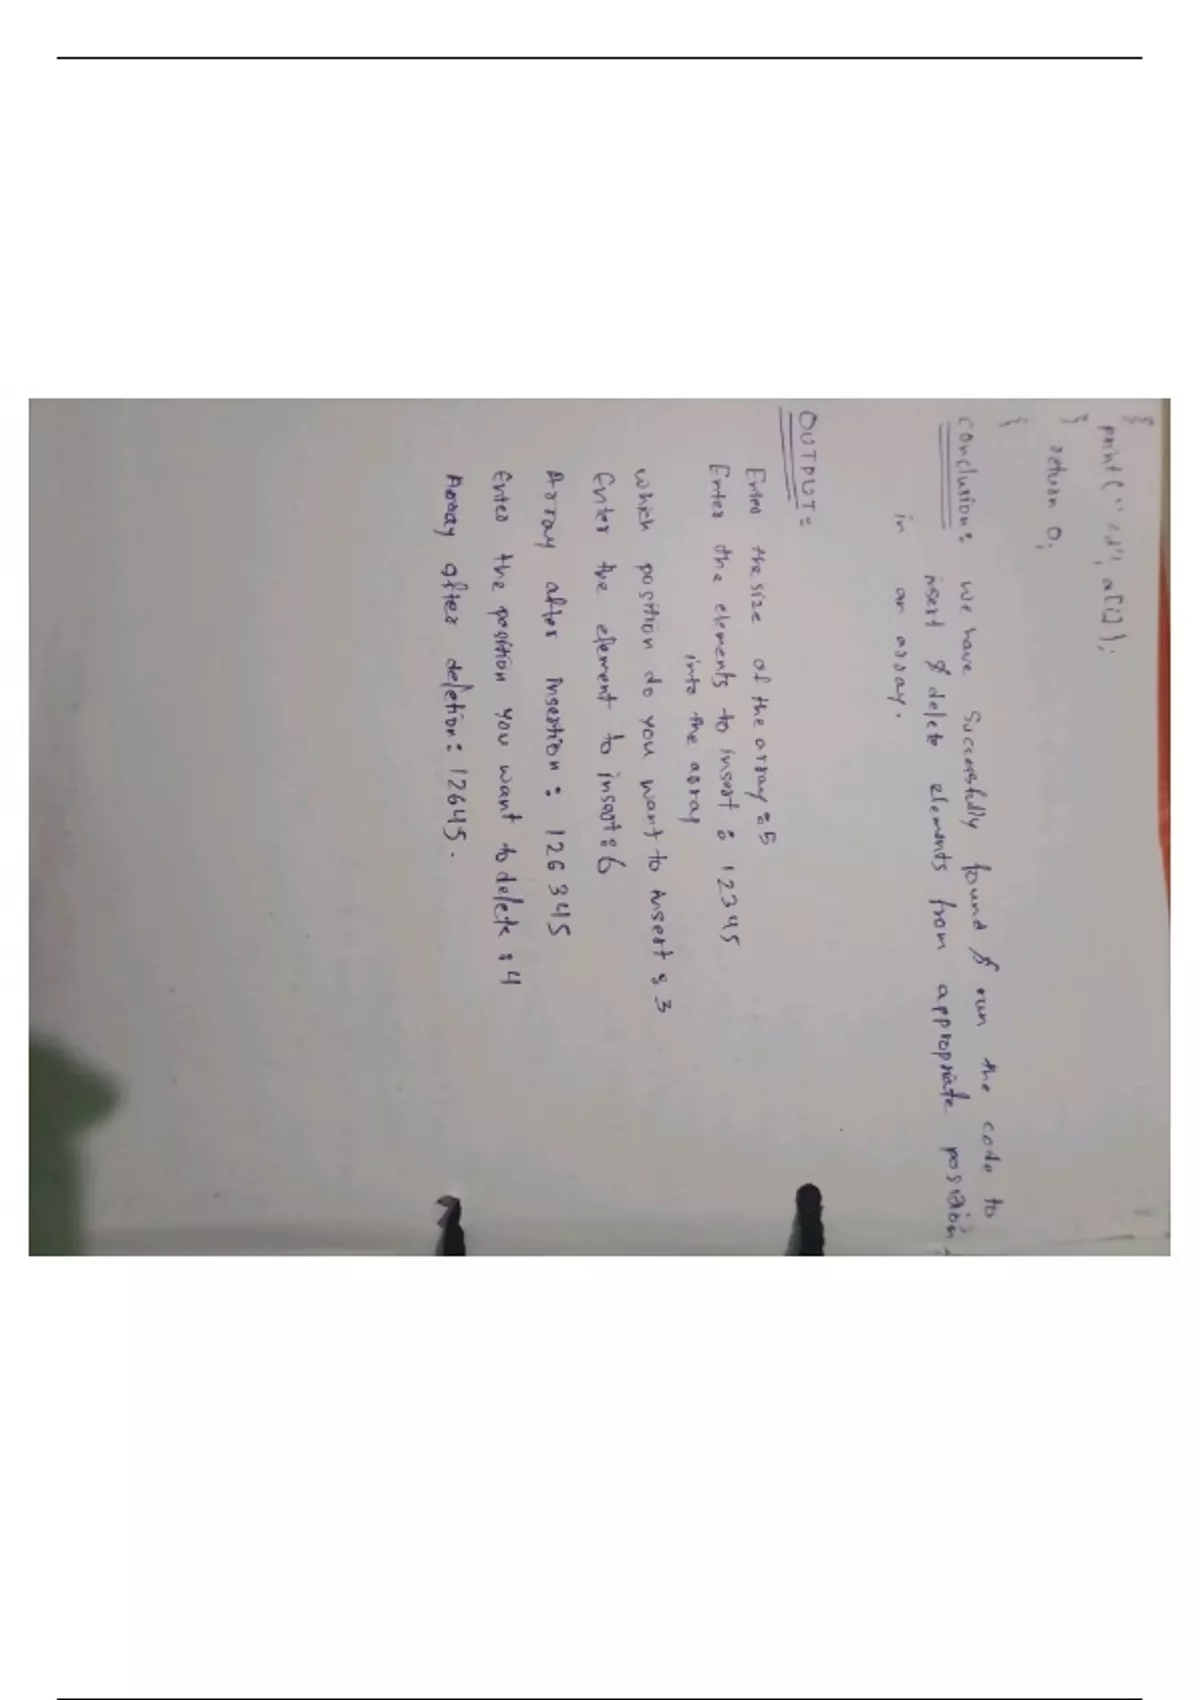 {
print("%d", a[i]);
}
return 0;
}
Conclusion: We have Successfully found & run the code to
insert & delete elements from appropriate position
in an array.
OUTPUT:
Enter the size of the array: 5
Enter the elements to insert : 12345
into the array
which position do you want to insert : 3
Enter the element to insert: 6
Array after insertion: 126345
Enter the position you want to delete : 4
Array after deletion: 12645.